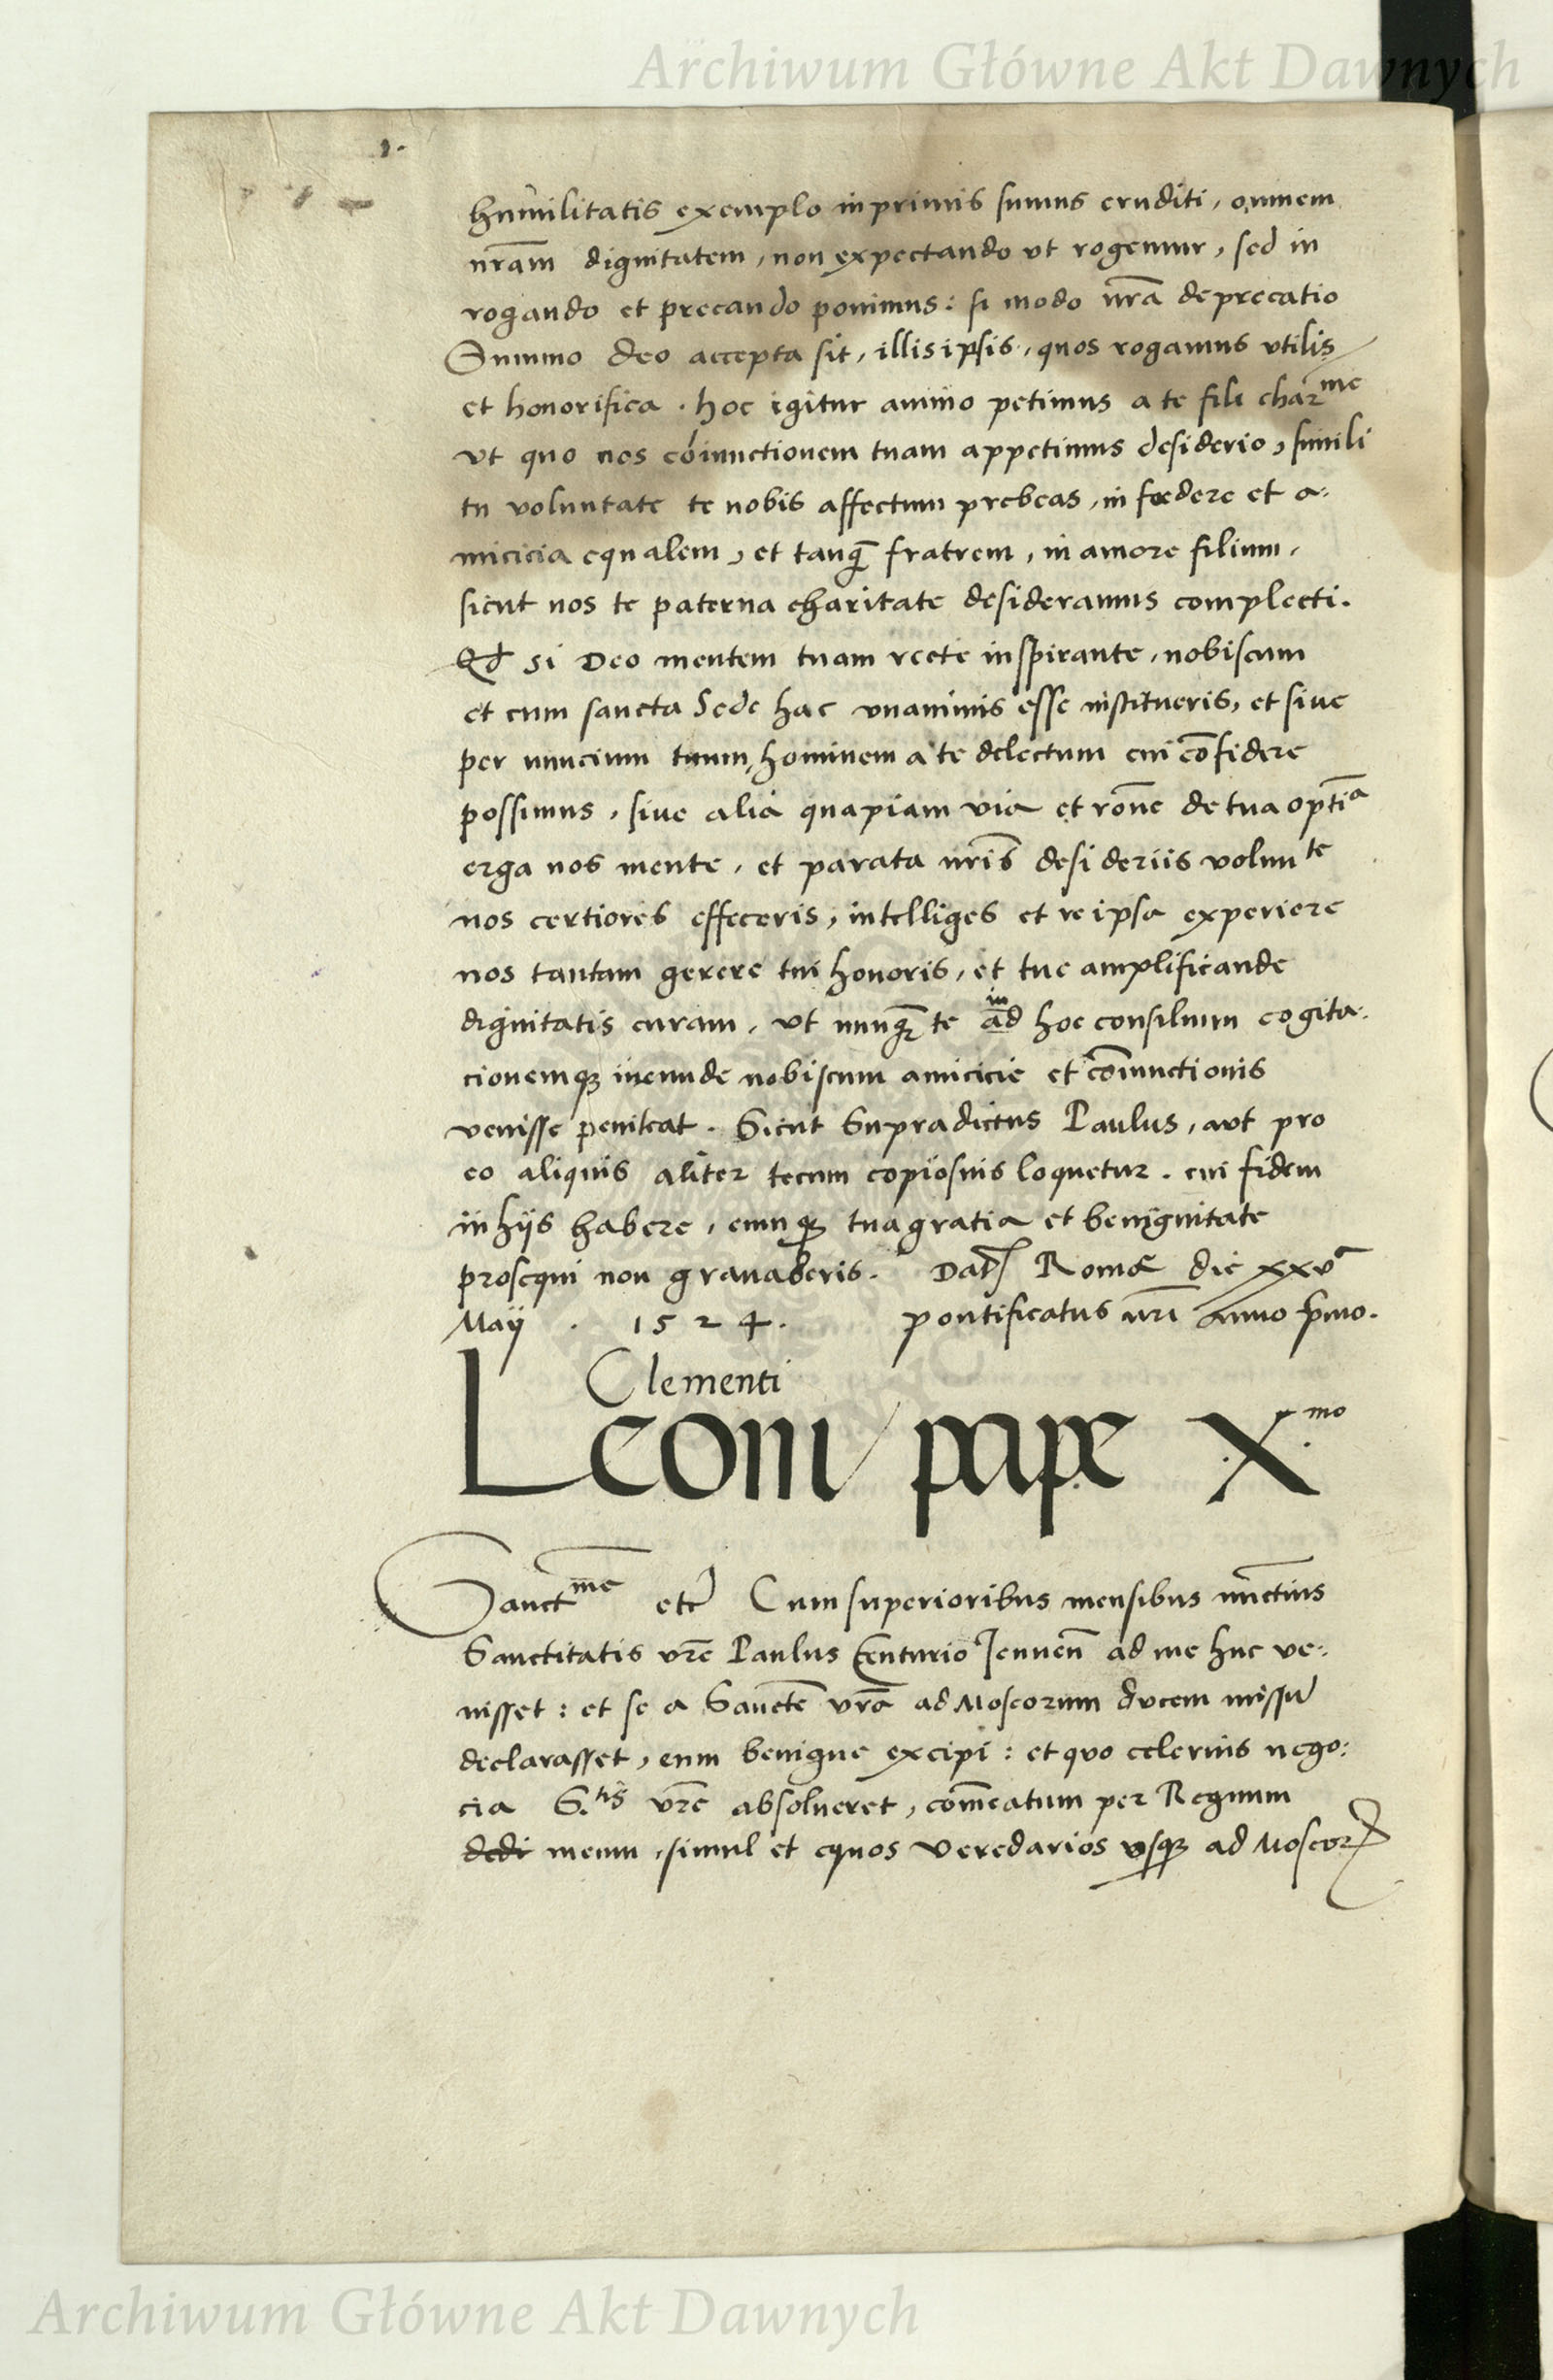 Archiwum Główne Akt Dawnych
humilitatis exemplo inprimis sumus eruditi, omnem
nrãm dignitatem, non expectando vt rogemur, sed in
rogando et precando ponimus: si modo nrã deprecatio
Summo deo accepta sit, illis ipsis, quos rogamus vtilis
et honorifica. hoc igitur animo petimus a te fili charme
vt quo nos cõiunctionem tuam appetimus desiderio, simili
tu voluntate te nobis affectum prebeas, in foedere et a:
micicia equalem, et tanq̃ fratrem, in amore filium,
sicut nos te paterna charitate desideramus complecti.
Qd si Deo mentem tuam recte inspirante, nobiscum
et cum sancta Sede hac vnanimis esse institueris, et siue
per nuncium tuum, hominem a te delectum cui cõfidere
possimus, siue alia quapiam via et rõne de tua optĩa
erga nos mente, et parata nrĩs desideriis volunte
nos certiores effeceris, intelliges et re ipsa experiere
nos tantam gerere tui honoris, et tue amplificande
in
dignitatis curam, vt nunq̃ te ad hoc consilium cogita:
cionemq; ineunde nobiscum amicicie et cõiunctionis
venisse peniteat. Sicut Supradictus Paulus, aut pro
eo aliquis aliter tecum copiosius loquetur. cui fidem
in hijs habere, eumq; tua gratia et benignitate
prosequi non grauaberis. Dat Romæ die xxv
Maij . 1524. pontificatus nrĩ Anno p̃mo.
Clementi
Leoni pape Xmo
Sanctme etc Cum superioribus mensibus nunctius
Sanctitatis vrẽ Paulus Centurio Jenueñ ad me huc ve:
nisset: et se a Sanctẽ vrã ad Moscorum ducem missũ
declarasset, eum benigne excipi: et quo celerius nego:
cia S.tis vrẽ absolueret, com̃eatum per Regnum
dedi meum, simul et equos veredarios vsq; ad Moscor
Archiwum Główne Akt Dawnych